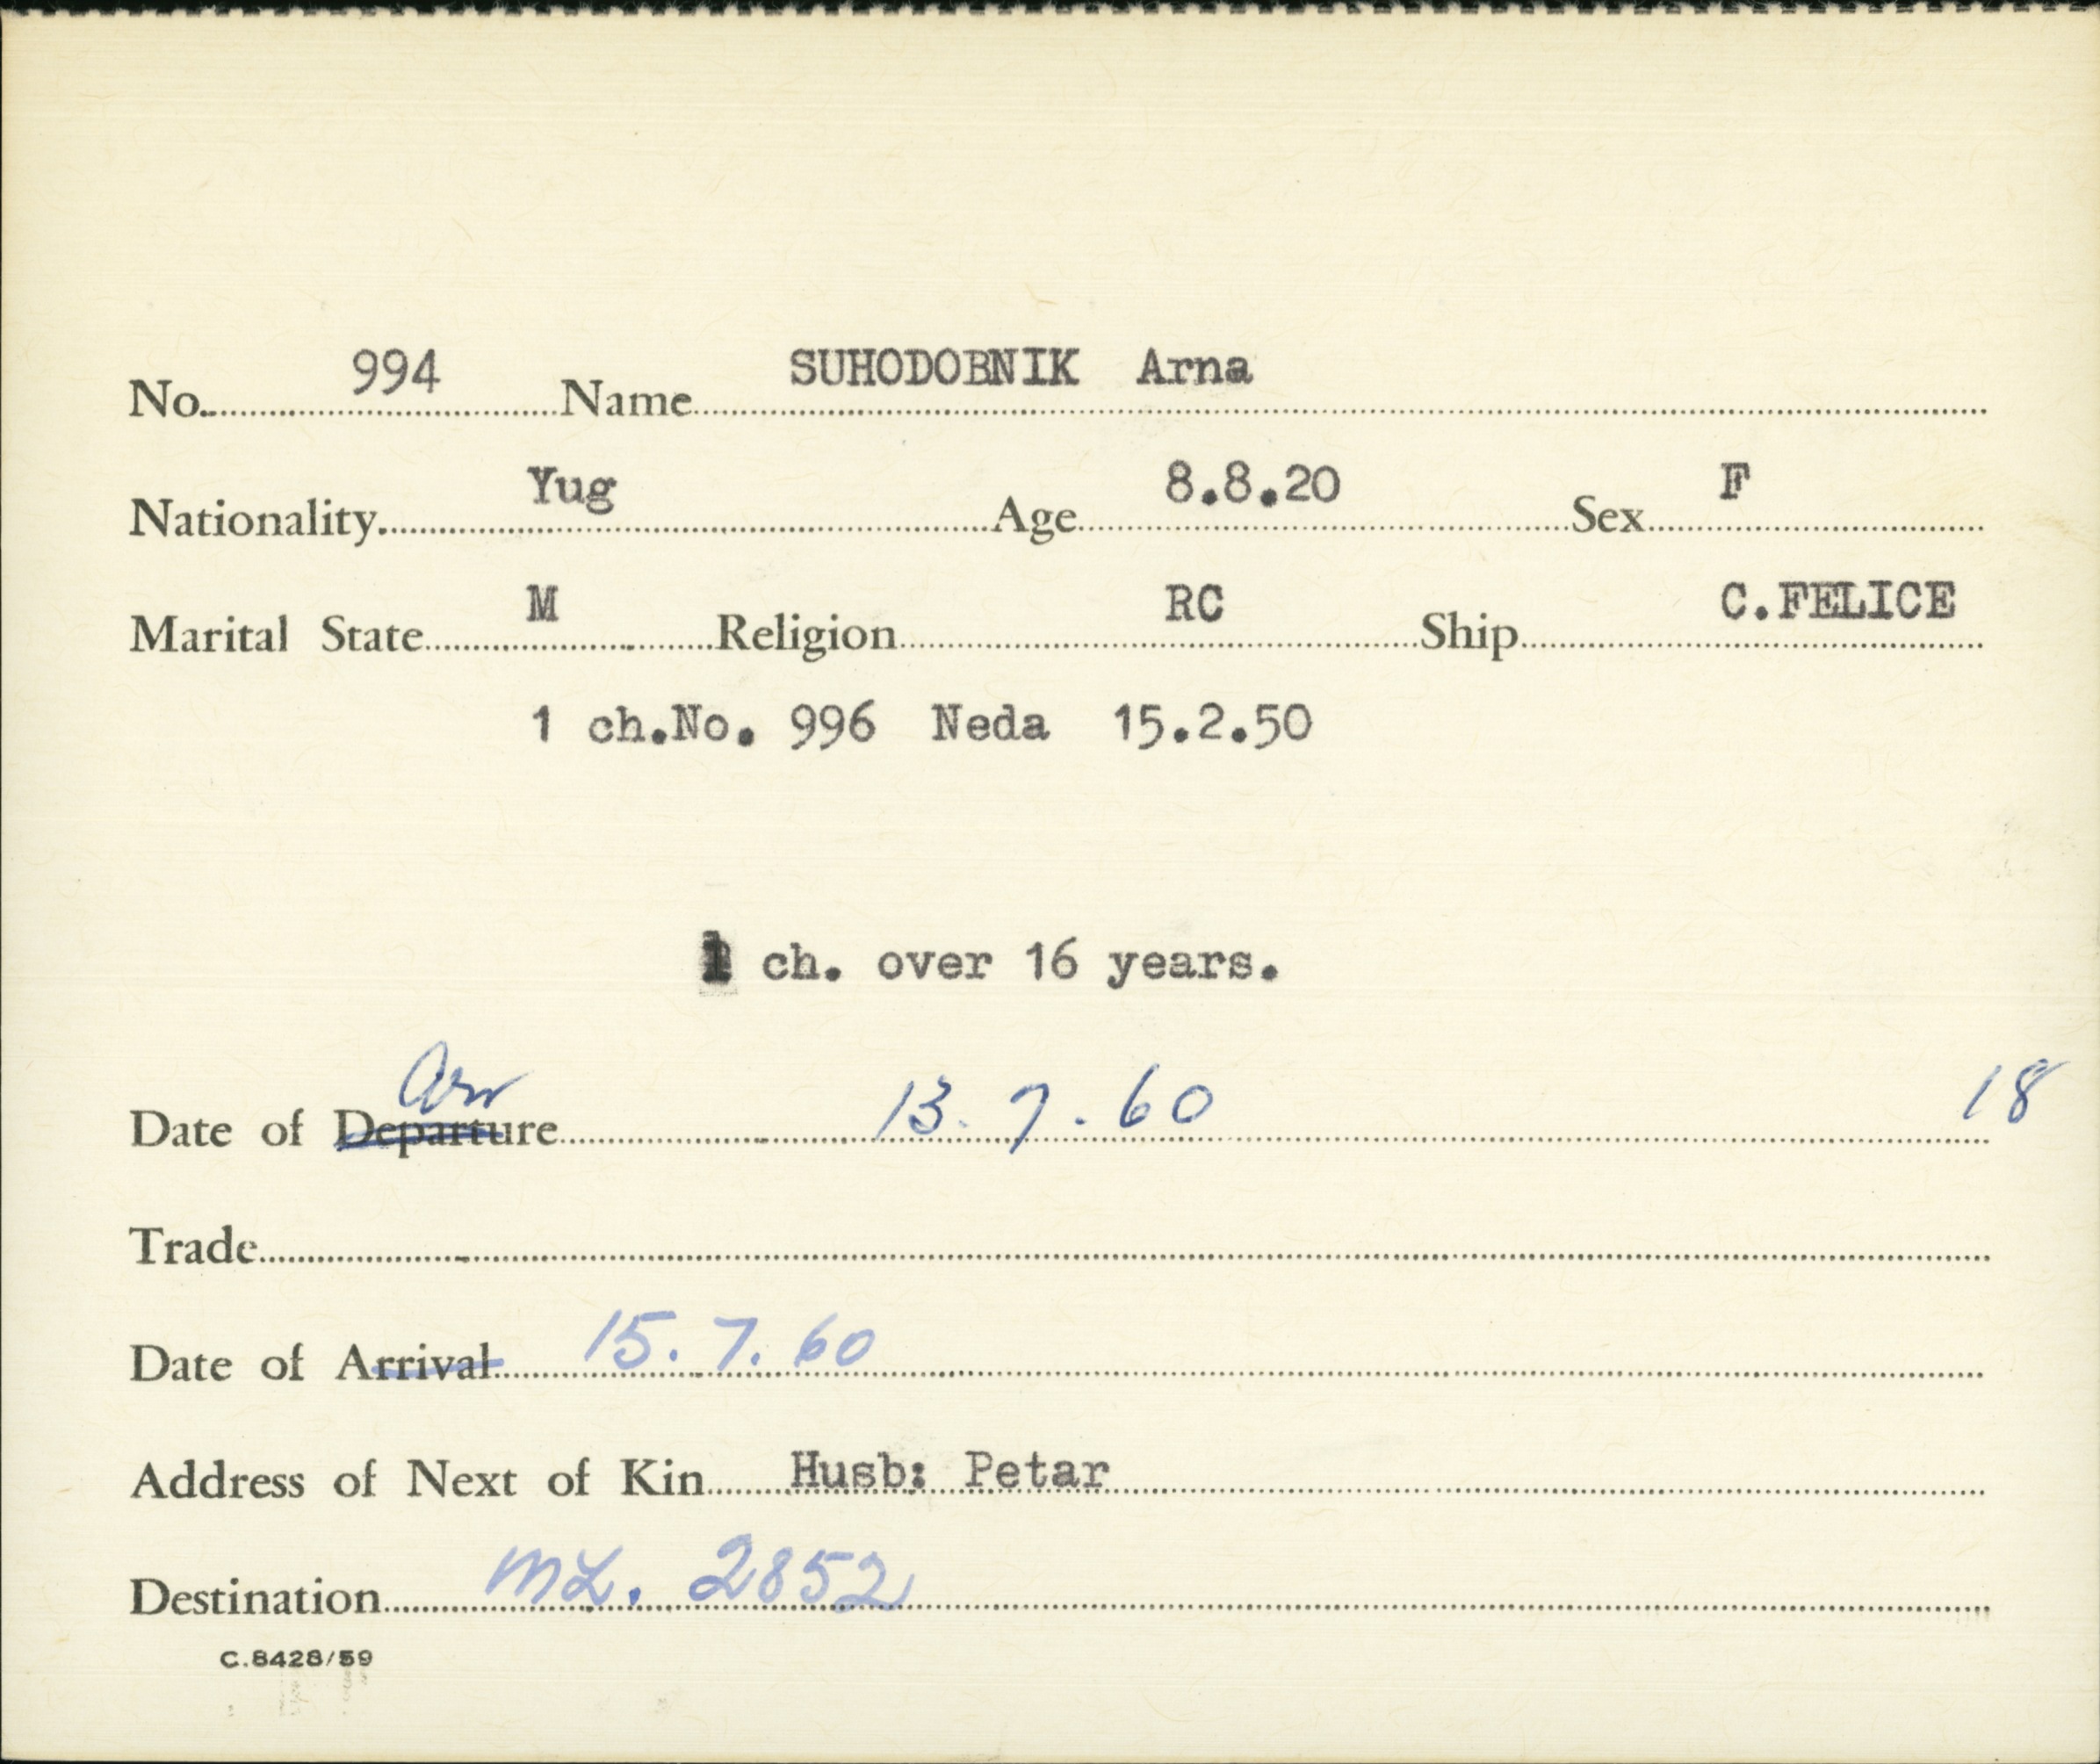 No. 994 Name SUHODOBNIK Arna
Nationality Yug Age 8.8.20 Sex F
Marital State M Religion RC Ship C.FELICE
1 ch.No. 996 Neda 15.2.50
1 ch. over 16 years.
Arr
Date of Departure 13.7.60 18
Trade
Date of Arrival 15.7.60
Address of Next of Kin Husb: Petar
Destination ML. 2852
C.8428/59